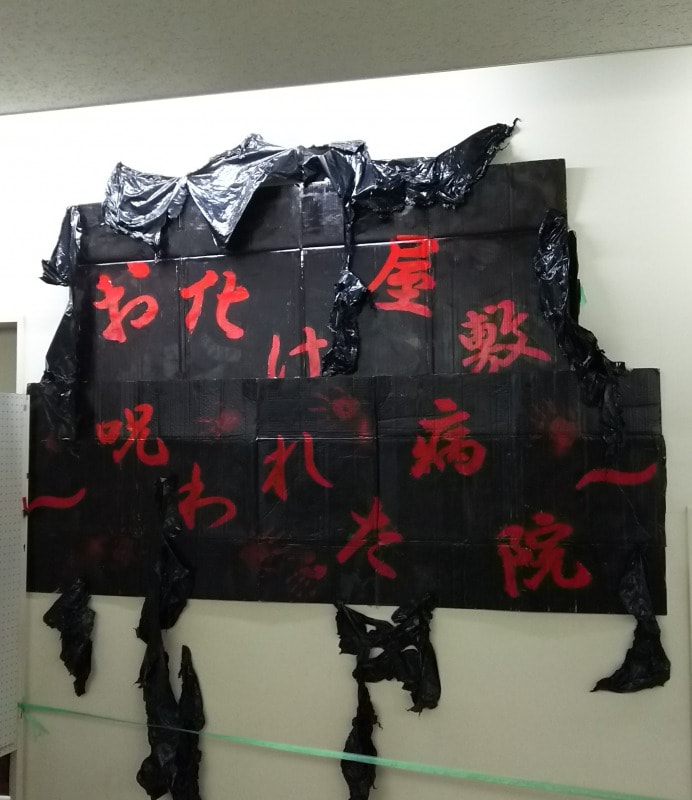 お化け屋敷
～呪われた病院～